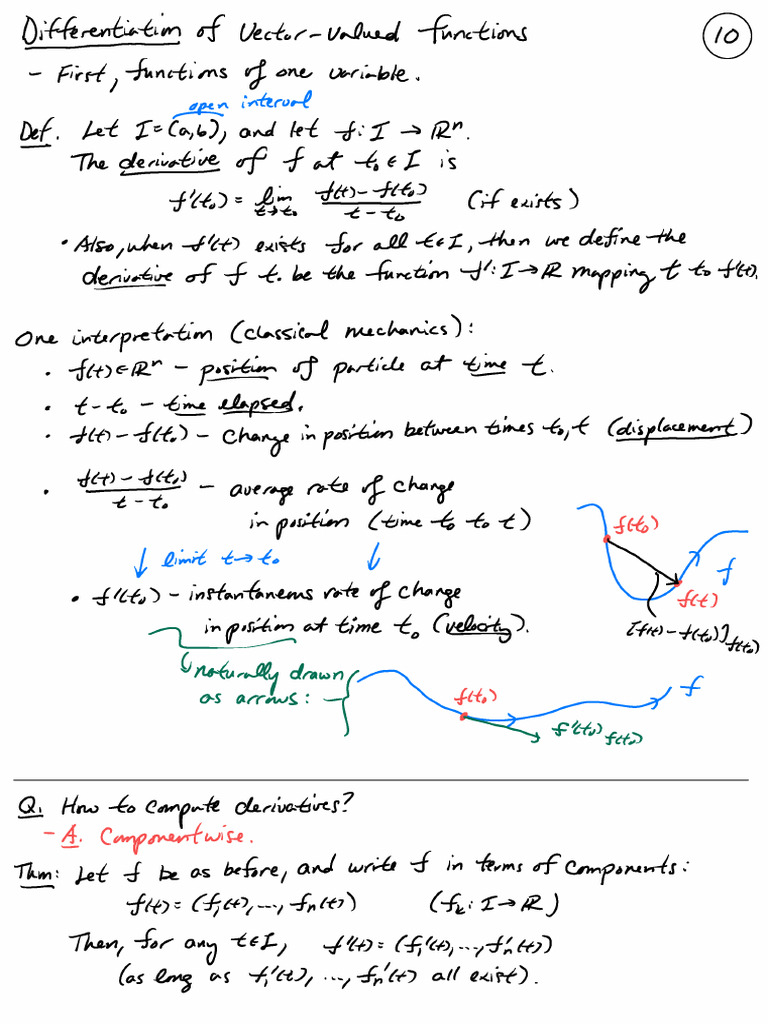 Differentiation of Vector-valued functions
10
- First, functions of one variable.
open interval
Def. Let I=(a,b), and let f: I → ℝⁿ.
The derivative of f at t₀ ∈ I is
f'(t₀) = lim_{t→t₀} (f(t) - f(t₀))/(t - t₀) (if exists)
• Also, when f'(t) exists for all t∈I, then we define the
derivative of f to be the function f': I→ℝ mapping t to f'(t).
One interpretation (classical mechanics):
• f(t)∈ℝⁿ - position of particle at time t.
• t-t₀ - time elapsed.
• f(t) - f(t₀) - change in position between times t₀, t (displacement)
• (f(t) - f(t₀))/(t - t₀) - average rate of change
in position (time t₀ to t)
↓ limit t→t₀ ↓
f(t₀)
f
f(t)
[f(t) - f(t₀)]_{f(t₀)}
• f'(t₀) - instantaneous rate of change
in position at time t₀ (velocity).
naturally drawn
as arrows:
f(t₀)
f
f'(t₀)_{f(t₀)}
Q. How to compute derivatives?
- A. Componentwise.
Thm: Let f be as before, and write f in terms of components:
f(t) = (f₁(t), ..., fₙ(t)) (fₖ: I→ℝ)
Then, for any t∈I, f'(t) = (f₁'(t), ..., fₙ'(t))
(as long as f₁'(t), ..., fₙ'(t) all exist).